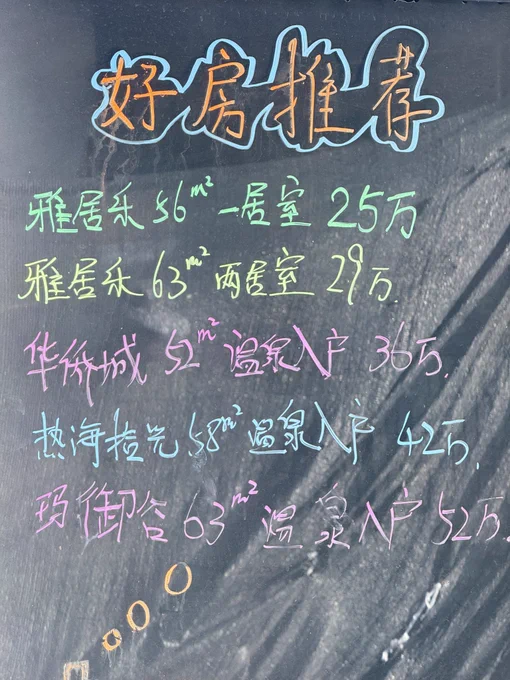 好房推荐
雅居乐56m²一居室25万
雅居乐63m²两居室29万.
华侨城52m²温泉入户36万.
热海拾光58m²温泉入户42万.
玛御谷63m²温泉入户52万.